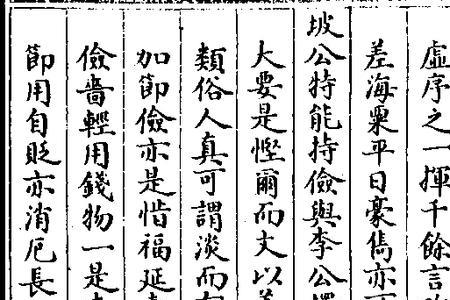 虛序之一揮千餘言
差海栗平日豪雋亦
坡公特能持儉與李公
大要是慳爾而文以
類俗人真可謂淡而
加節儉亦是惜福延
儉嗇輕用錢物一是
節用自貶亦消厄長